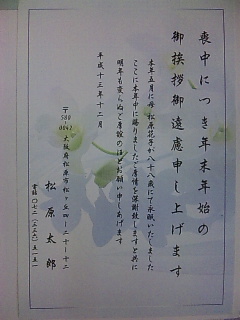 喪中につき年末年始の
御挨拶御遠慮申し上げます
本年五月に母 松原花子が八十八歳にて永眠いたしました
ここに本年中に賜りましたご厚情を深謝致しますと共に
明年も変らぬご厚誼のほどお願い申しあげます
平成十三年十二月
〒580-0042
大阪府松原市松ヶ丘四-二十-十二
松原太郎
電話 〇七二(三三六)五一五一